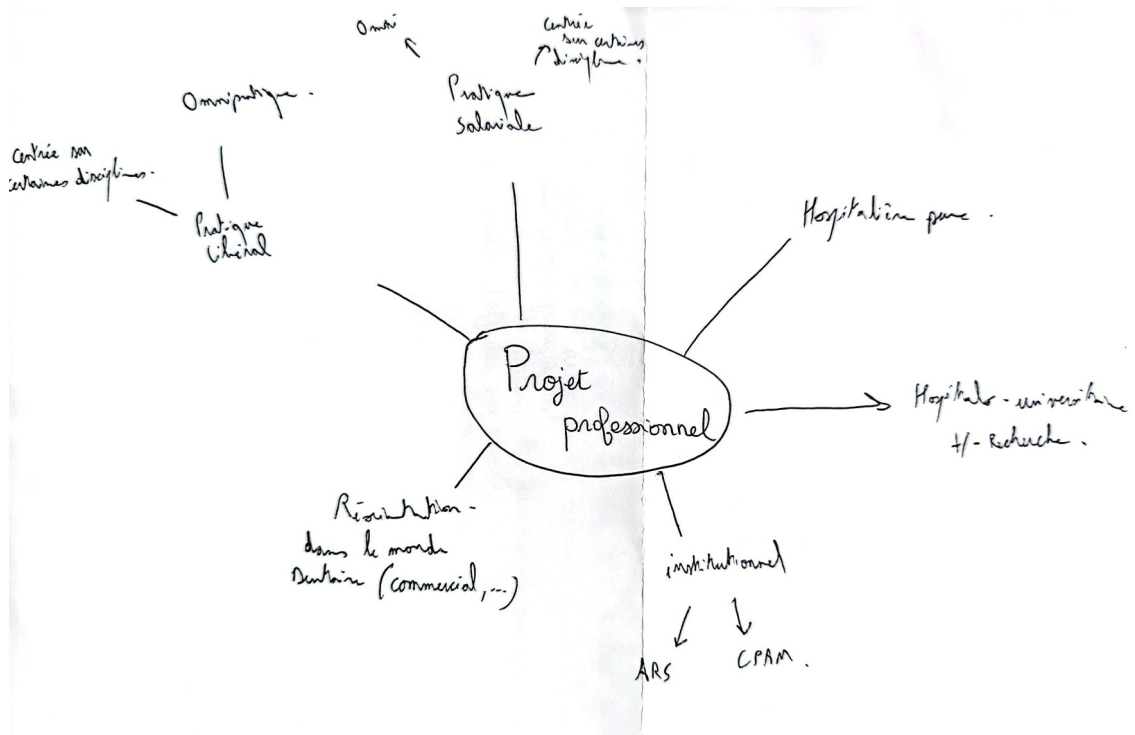 Omni
centrée
sur certaines
discipline.
Pratique
salariale
Omnipratique.
centrée sur
certaines disciplines.
Pratique
libéral
Hospitalière pure.
Projet
professionnel
Hospitalo-universitaire
+/- Recherche.
Réorientation
dans le monde
Dentaire (commercial,...)
institutionnel
ARS
CPAM.